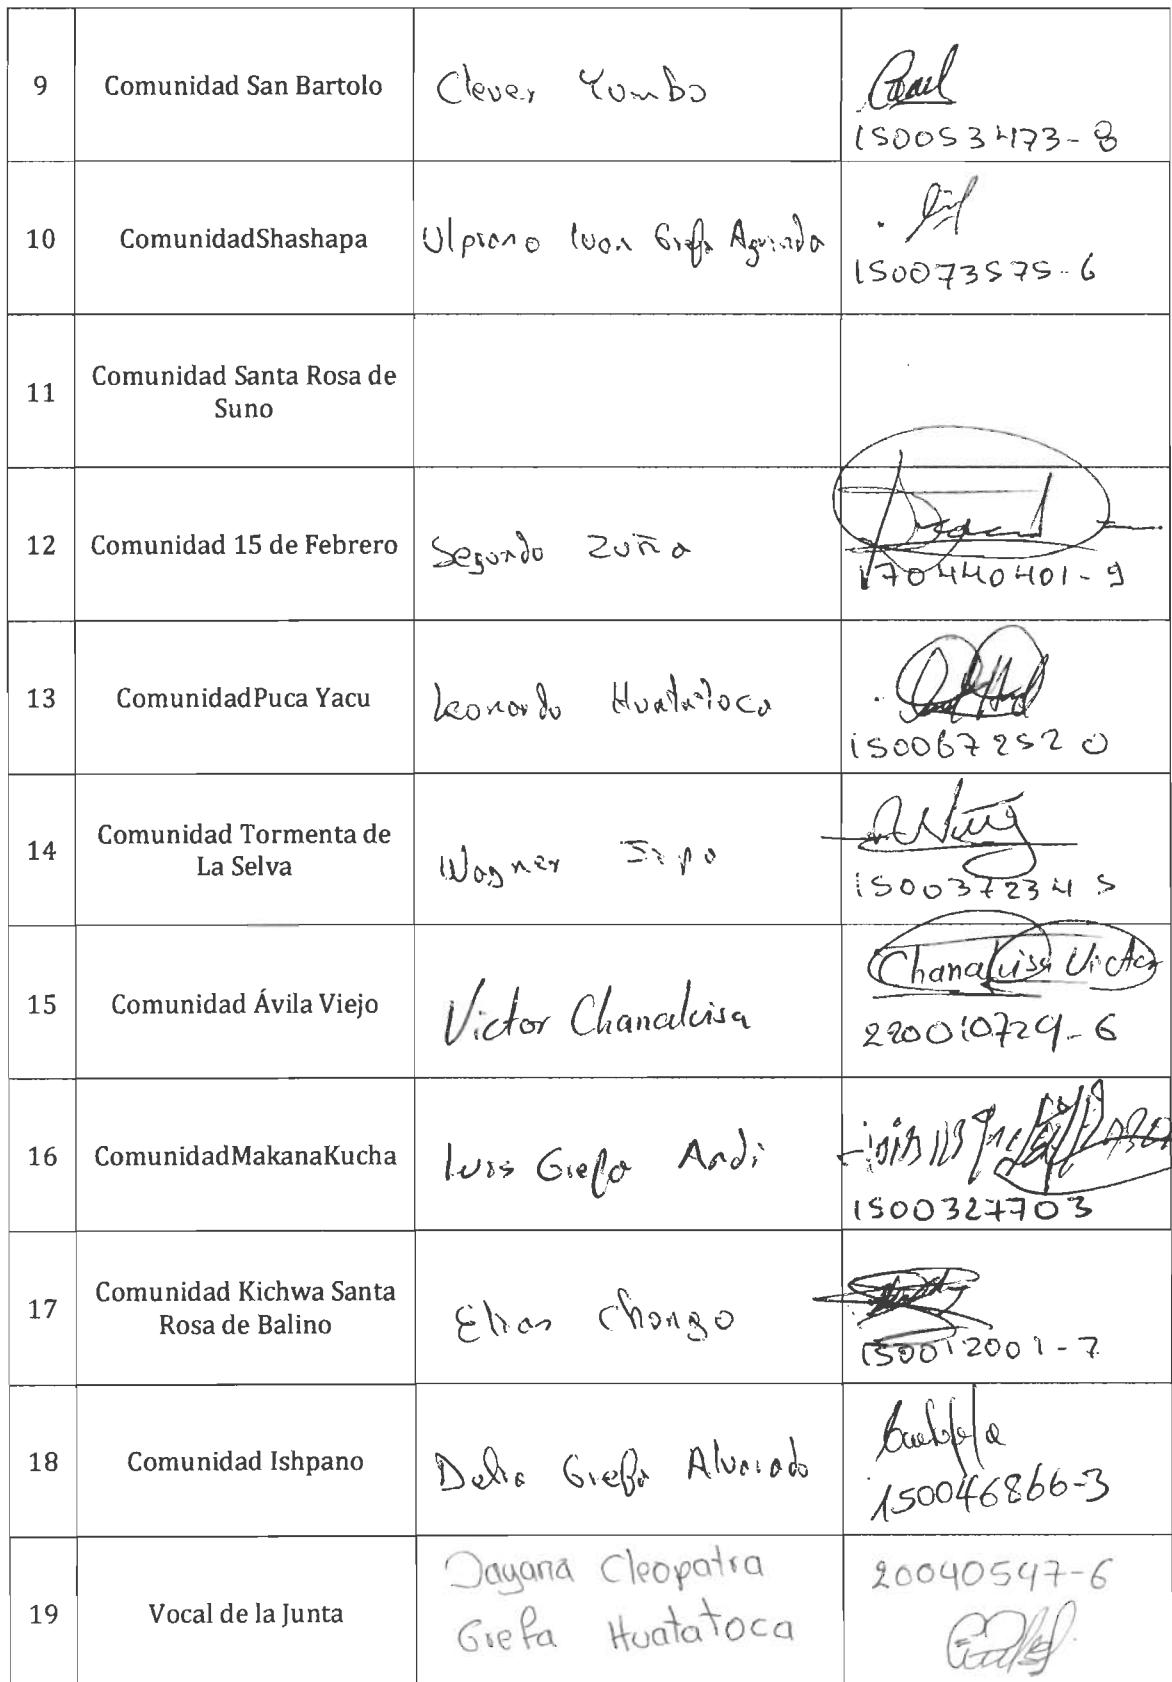 9
Comunidad San Bartolo
Clever Yumbo
150053473-8
10
ComunidadShashapa
Ulpiano Ivan Grefa Aguinda
150073575-6
11
Comunidad Santa Rosa de
Suno
12
Comunidad 15 de Febrero
Segundo Zuña
170440401-9
13
ComunidadPuca Yacu
Leonardo Huatatoca
150067252 0
14
Comunidad Tormenta de
La Selva
Wagner
150037234 5
15
Comunidad Ávila Viejo
Victor Chanaluisa
Chanaluisa Victor
220010729-6
16
ComunidadMakanaKucha
luis Grefa Andi
1500327703
17
Comunidad Kichwa Santa
Rosa de Balino
Elias Chongo
150012001-7
18
Comunidad Ishpano
Delia Grefa Alvarado
150046866-3
19
Vocal de la Junta
Dayana Cleopatra
Grefa Huatatoca
20040547-6